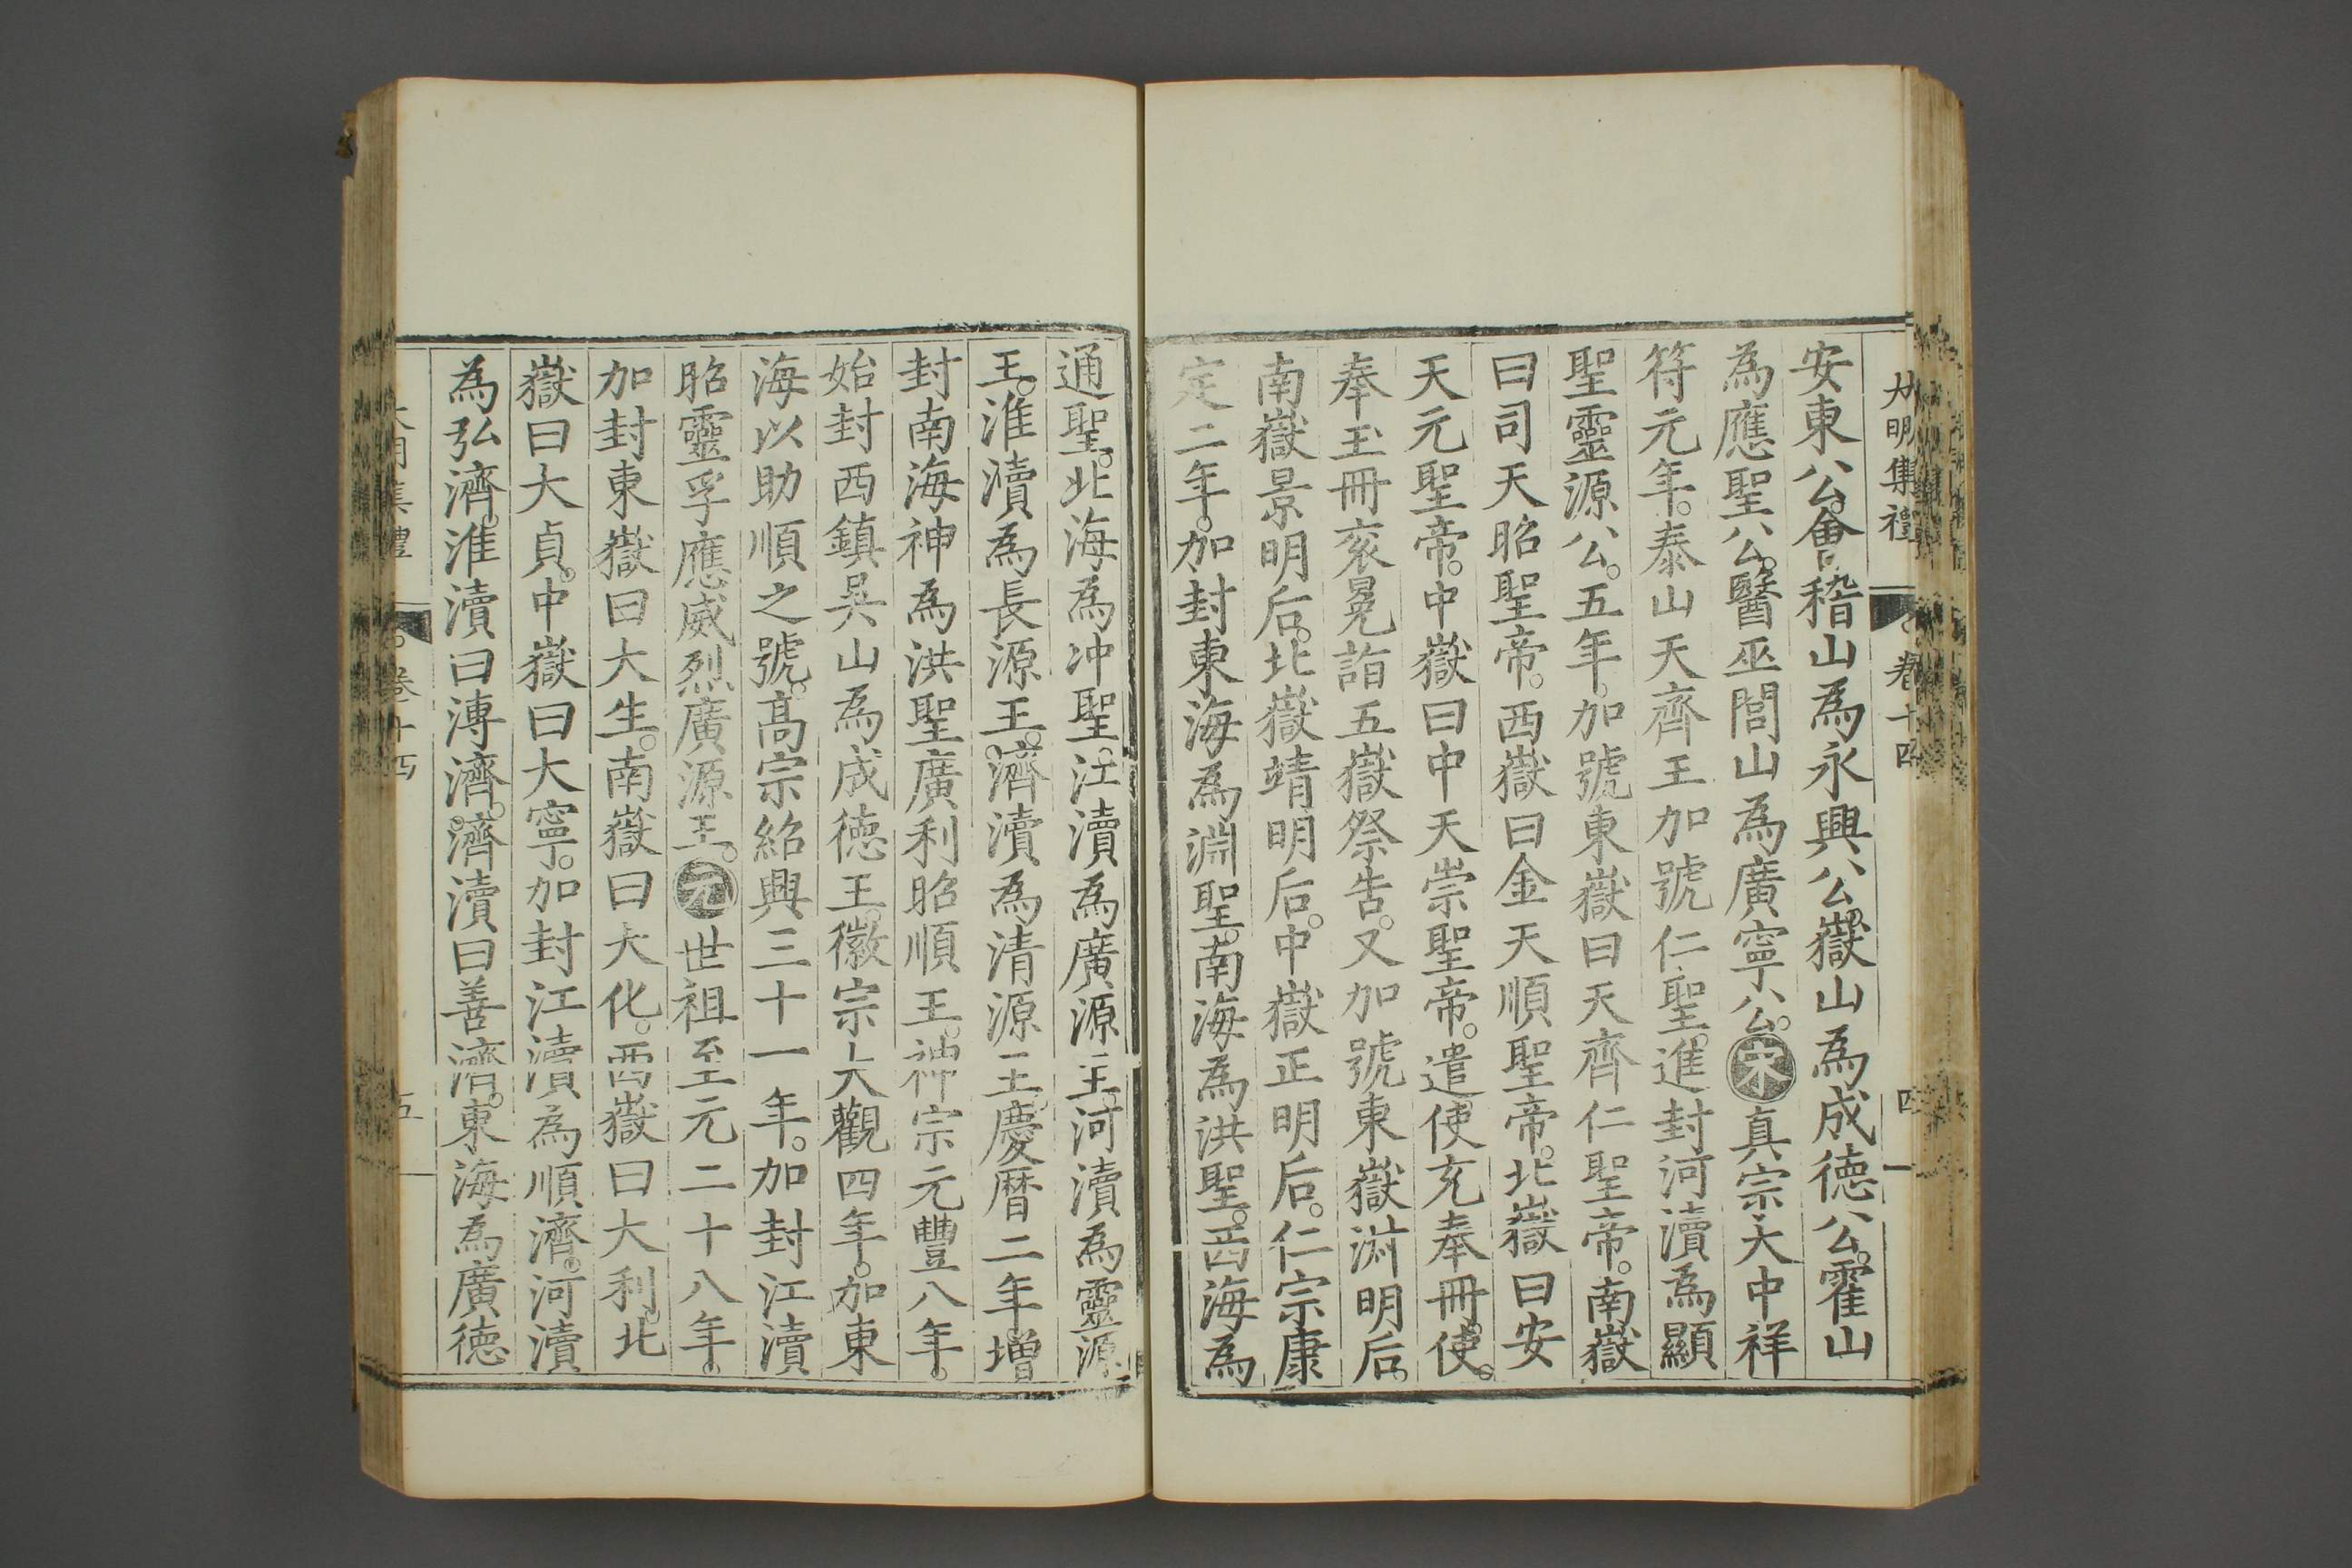 大明集禮 卷十四 四
安東公。會稽山為永興公。嶽山為成德公。霍山
為應聖公。醫巫閭山為廣寧公。宋真宗大中祥
符元年。泰山天齊王加號仁聖。進封河瀆為顯
聖靈源公。五年。加號東嶽曰天齊仁聖帝。南嶽
曰司天昭聖帝。西嶽曰金天順聖帝。北嶽曰安
天元聖帝。中嶽曰中天崇聖帝。遣使充奉冊使。
奉玉冊衮冕詣五嶽祭告。又加號東嶽淑明后。
南嶽景明后。北嶽靖明后。中嶽正明后。仁宗康
定二年。加封東海為淵聖。南海為洪聖。西海為
通聖。北海為冲聖。江瀆為廣源王。河瀆為靈源
王。淮瀆為長源王。濟瀆為清源王。慶曆二年增
封南海神為洪聖廣利昭順王。神宗元豐八年。
始封西鎮吳山為成德王。徽宗大觀四年。加東
海以助順之號。高宗紹興三十一年。加封江瀆
昭靈孚應威烈廣源王。元世祖至元二十八年。
加封東嶽曰大生。南嶽曰大化。西嶽曰大利。北
嶽曰大貞。中嶽曰大寧。加封江瀆為順濟。河瀆
為弘濟。淮瀆曰溥濟。濟瀆曰善濟。東海為廣德
大明集禮 卷十四 五